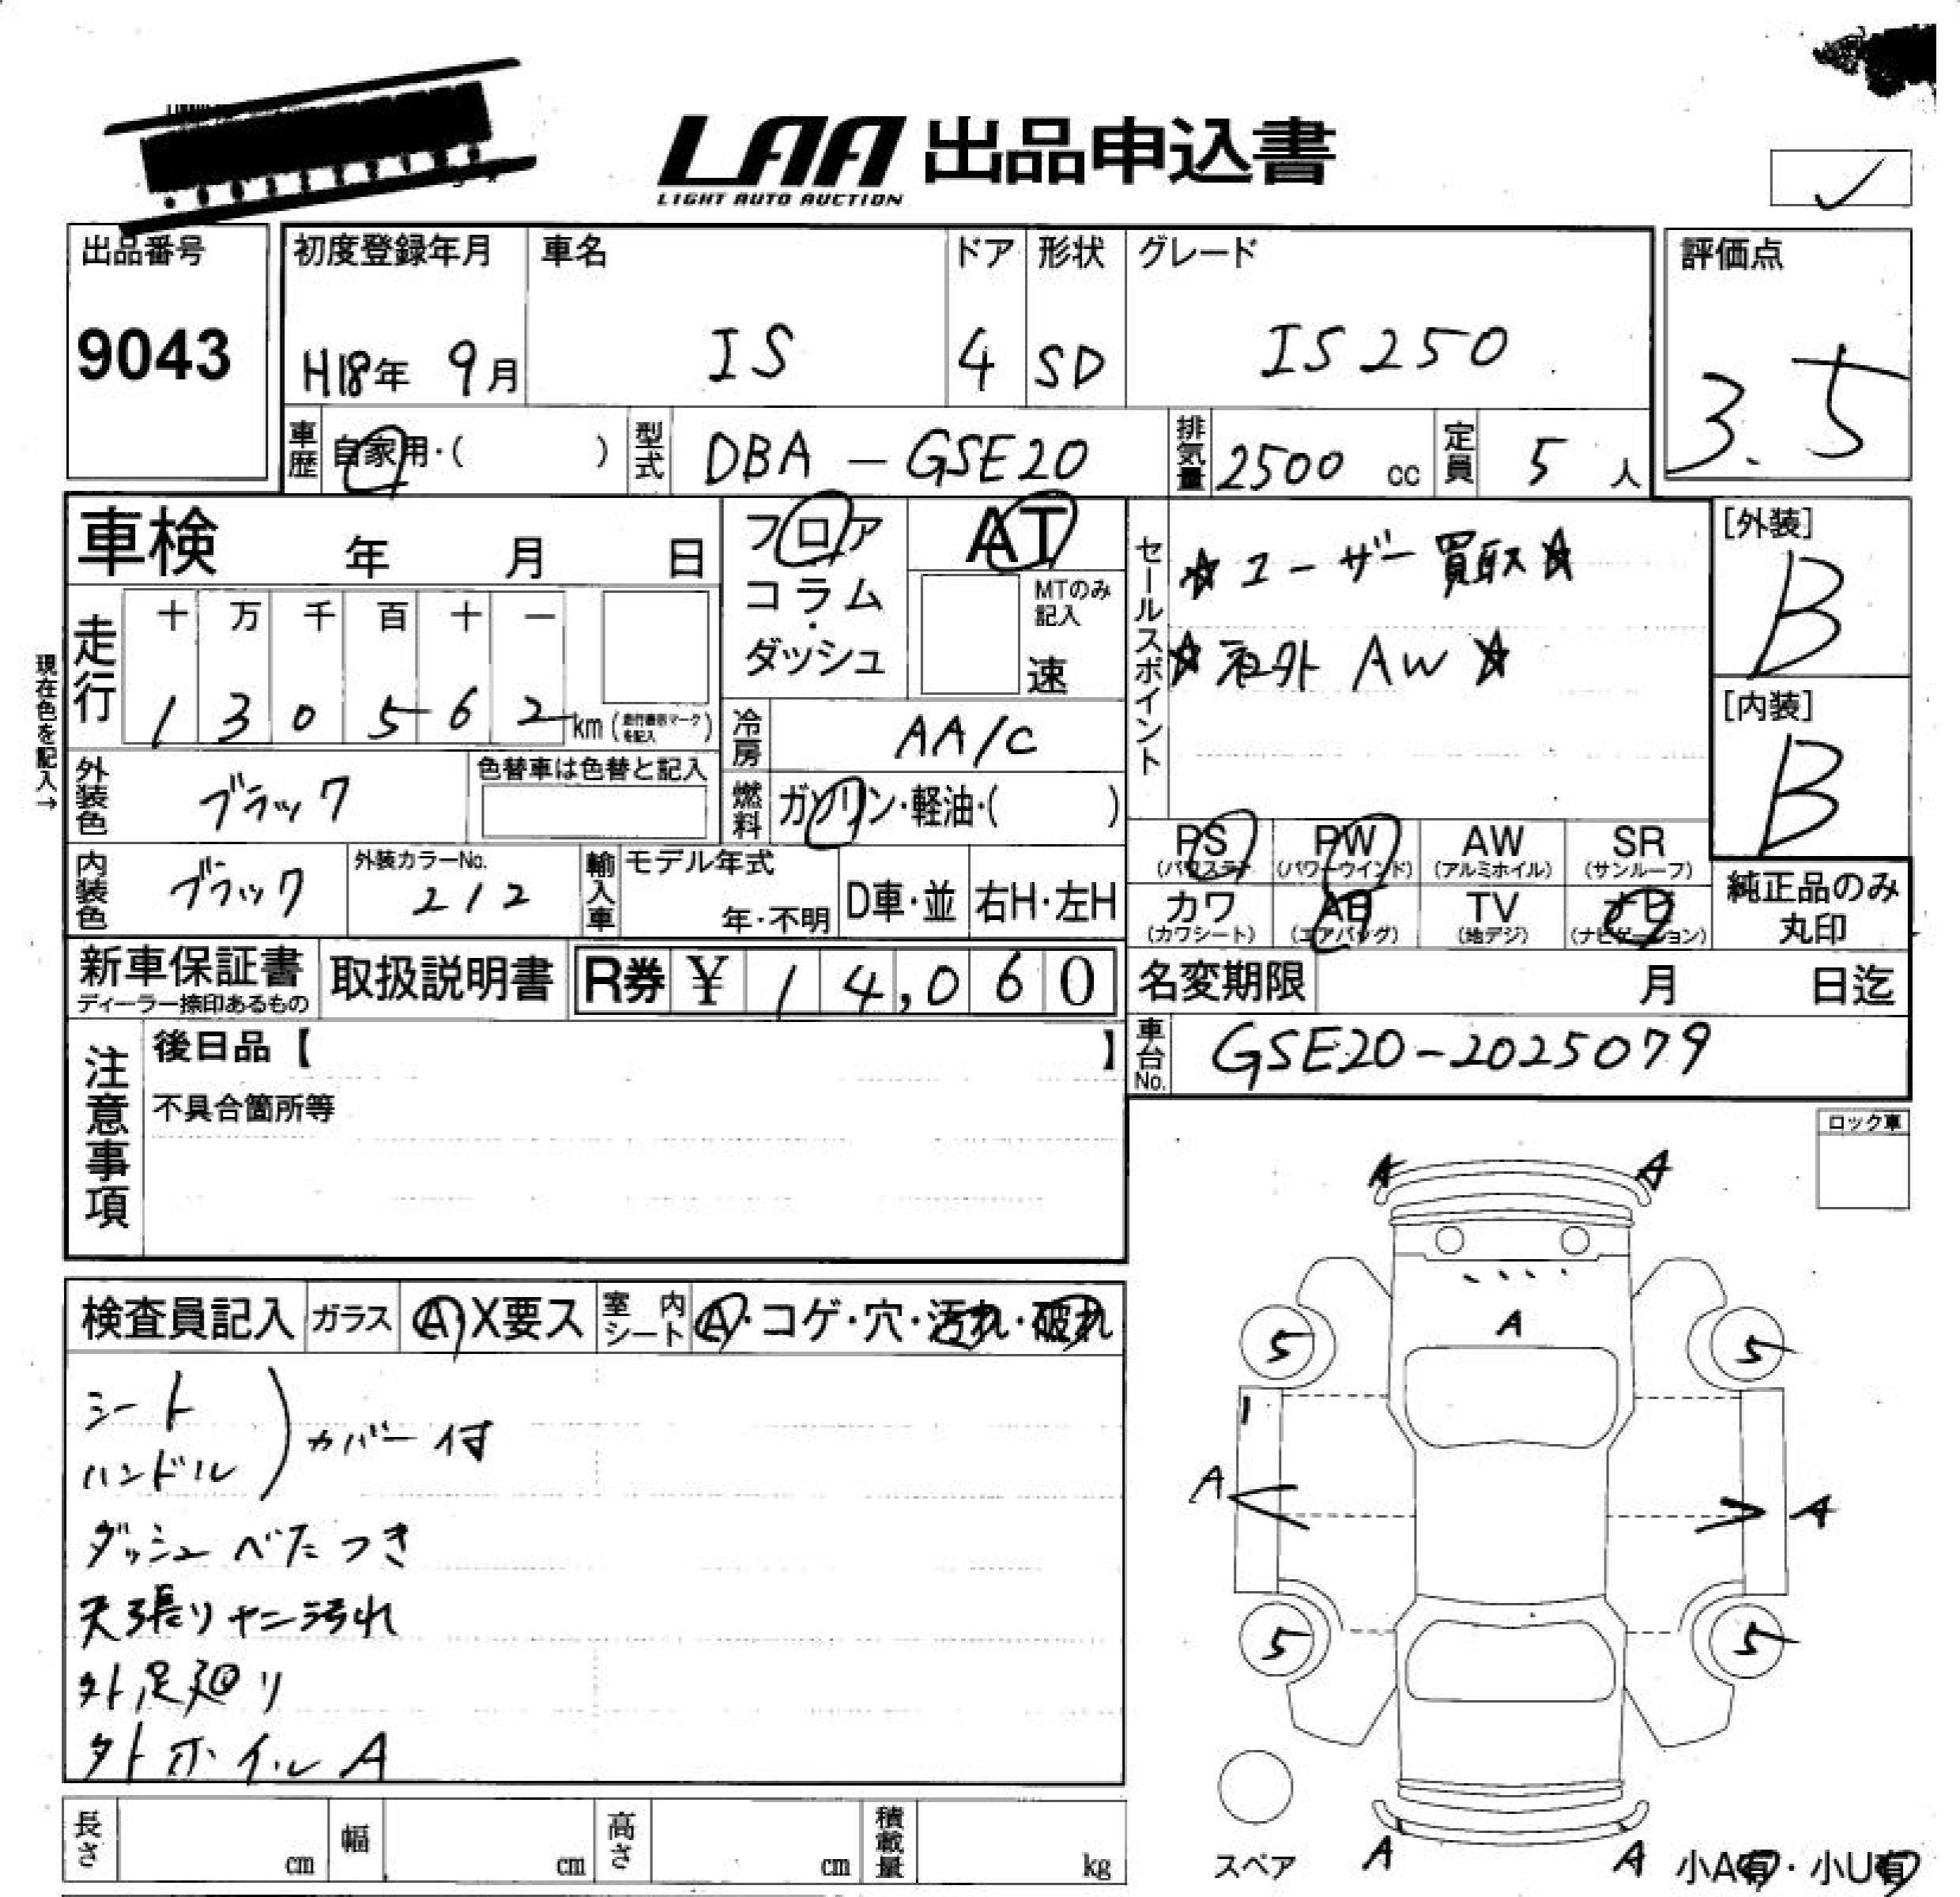 LAA 出品申込書
LIGHT AUTO AUCTION
✓
出品番号
9043
初度登録年月
H18年 9月
車名
IS
ドア
4
形状
SD
グレード
IS250
評価点
3.5
車歴 自家用・( )
型式 DBA-GSE20
排気量 2500 cc
定員 5 人
車検 年 月 日
フロア
コラム
・
ダッシュ
AT
MTのみ
記入
速
セールスポイント
☆ユーザー買取☆
☆社外 AW☆
[外装]
B
[内装]
B
現在色を記入→
走行
十 万 千 百 十 一
1 3 0 5 6 2 km (走行表示マークを記入)
冷房 AA/C
外装色 ブラック
色替車は色替と記入
燃料 ガソリン・軽油・( )
内装色 ブラック
外装カラーNo.
212
輸入車
モデル年式
年・不明
D車・並
右H・左H
PS
(パワステ)
PW
(パワーウインド)
AW
(アルミホイル)
SR
(サンルーフ)
カワ
(カワシート)
AB
(エアバッグ)
TV
(地デジ)
ナビ
(ナビゲーション)
純正品のみ
丸印
新車保証書
ディーラー捺印あるもの
取扱説明書
R券 ¥ 14,060
名変期限 月 日迄
車台No. GSE20-2025079
注意事項
後日品【 】
不具合箇所等
ロック車
検査員記入
ガラス A・X要ス
室内シート A・コゲ・穴・汚れ・破れ
シート
ハンドル
カバー付
ダッシュベたつき
天張りヤニ汚れ
外足廻り
外ホイルA
A A
A
5 5
A A
5 5
スペア
A A
小A有・小U有
長さ cm
幅 cm
高さ cm
積載量 kg